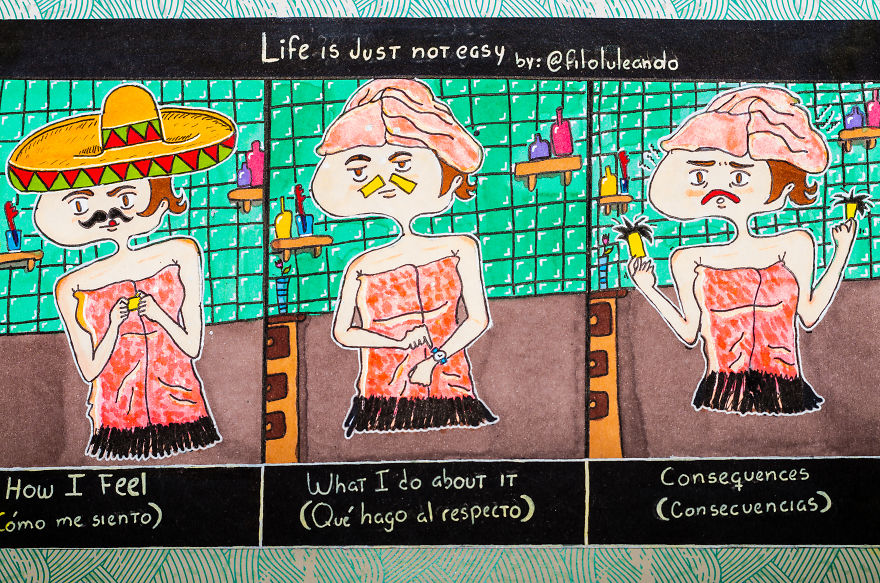 Life is Just not easy by: @filoluleando
How I Feel
(Cómo me siento)
What I do about it
(Qué hago al respecto)
Consequences
(Consecuencias)